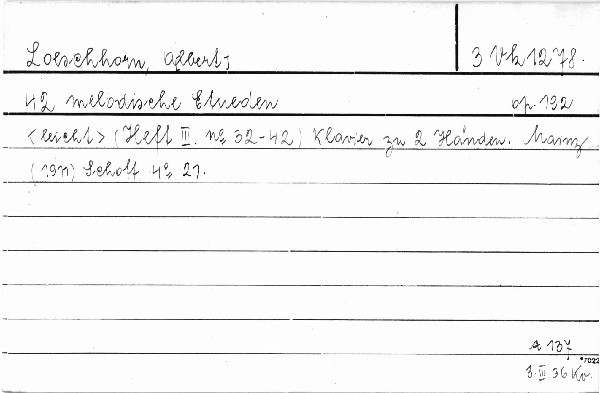 Loeschhorn, Albert; 3 Vk 1278.
42 melodische Etueden op. 132
<leicht> (Heft III. no 32-42) Klavier zu 2 Händen. Mainz
(1911) Schott 4° 21.
a 137
*7022
3. III 36 Kv.